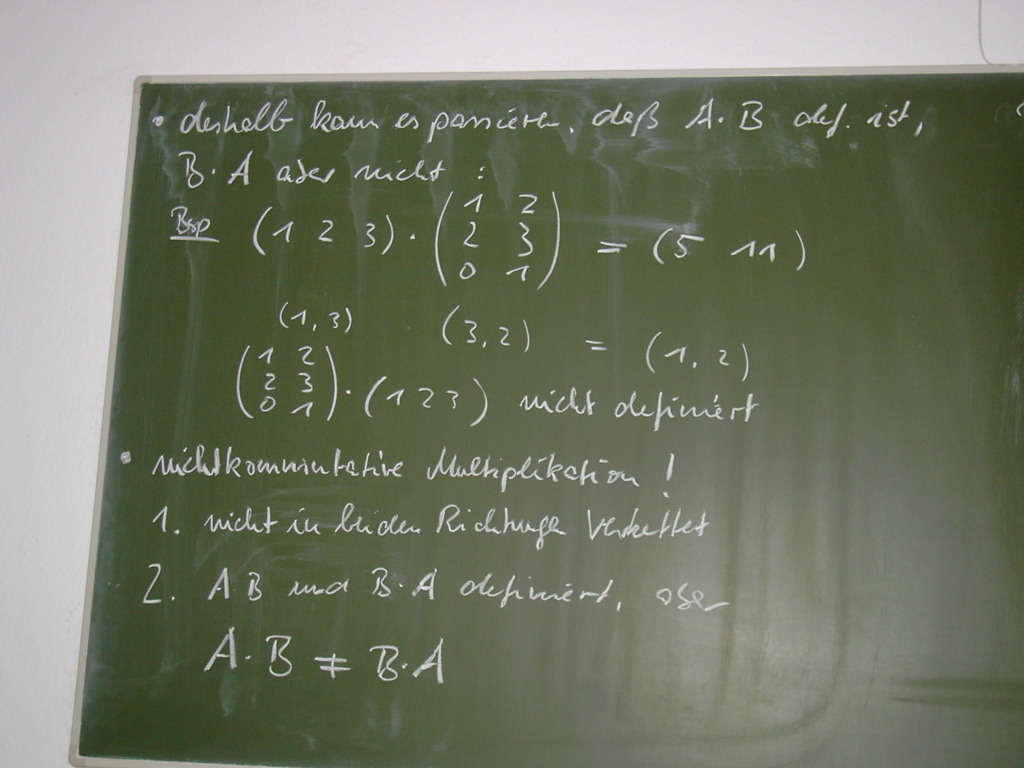 • deshalb kann es passieren, daß A·B def. ist,
B·A aber nicht :
Bsp (1 2 3) · (1 2
2 3
0 1) = (5 11)
(1,3) (3,2) = (1,2)
(1 2
2 3
0 1) · (1 2 3) nicht definiert
• nichtkommutative Multiplikation !
1. nicht in beiden Richtungen verkettet
2. A B und B·A definiert, aber
A·B ≠ B·A